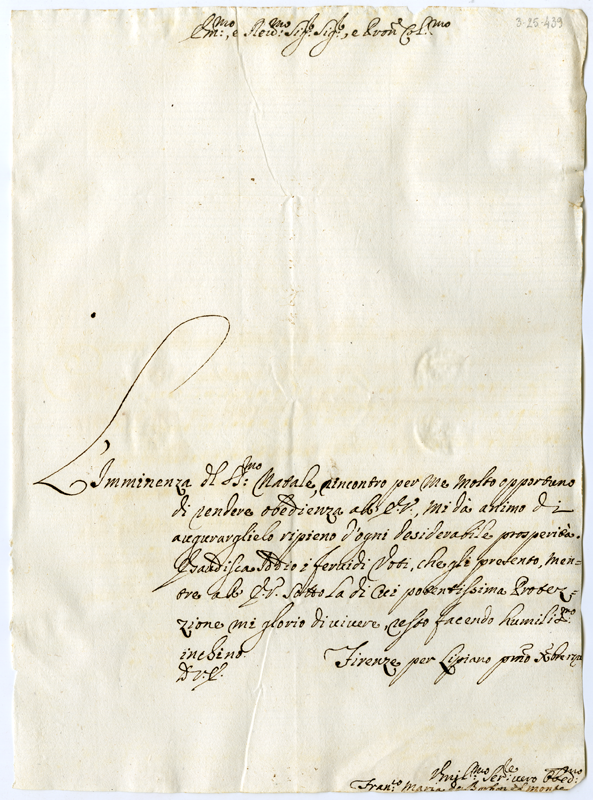 3-25-439
Em.mo, e Rev.mo Sig.r Sig.r, e Pron. Col.mo
L'Imminenza del SS.mo Natale, rincontro per me molto opportuno
di rendere obedienza all' E.V., mi dà animo di
augurarglielo ripieno d'ogni desiderabile prosperità.
Esaudisca Iddio i fervidi Voti, che gli presento, men=
tre all' E.V. sotto la di Cui potentissima Protez=
zione mi glorio di vivere, resto facendo humiliss.mo
inchino.
Firenze per Lipiano pmo Xbre
D.V.E.
Umil.mo Ser.re vero Obed.mo
Fran.co Maria del Monte